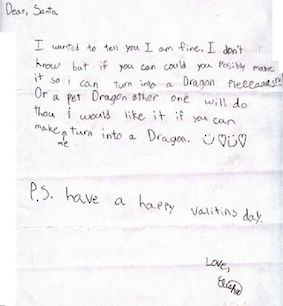 Dear, Santa
I wanted to tell you I am fine. I don't
know but if you can could you posibly make
it so i can turn into a Dragon Pleeeaaas
Or a pet Dragon ether one will do
thou i would like it if you can
make me turn into a Dragon. ☺♡☺♡
P.S. have a happy valitins day.
Love,